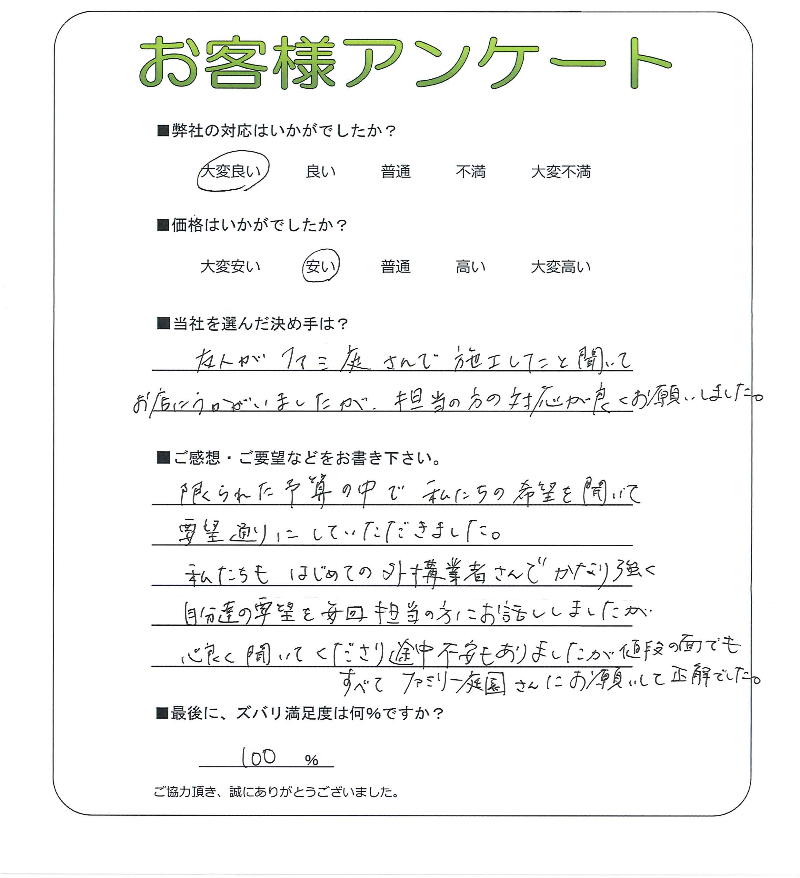 お客様アンケート
■弊社の対応はいかがでしたか？
大変良い 良い 普通 不満 大変不満
■価格はいかがでしたか？
大変安い 安い 普通 高い 大変高い
■当社を選んだ決め手は？
友人がファミ庭さんで施工したこと聞いて
お店にうかがいましたが、担当の方の対応が良くお願いしました。
■ご感想・ご要望などをお書き下さい。
限られた予算の中で私たちの希望を聞いて
要望通りにしていただきました。
私たちもはじめての外構業者さんでかなり強く
自分達の要望を毎回担当の方にお話ししましたが
心良く聞いてくださり途中不安もありましたが値段の面でも
すべてファミリー庭園さんにお願いして正解でした。
■最後に、ズバリ満足度は何%ですか？
100 %
ご協力頂き、誠にありがとうございました。